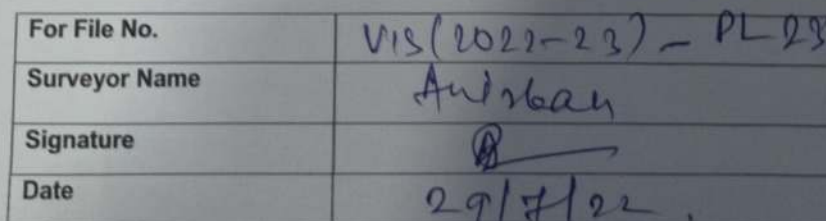 For File No. VIS(2022-23) - PL23
Surveyor Name Anirban
Signature
Date 29/7/22